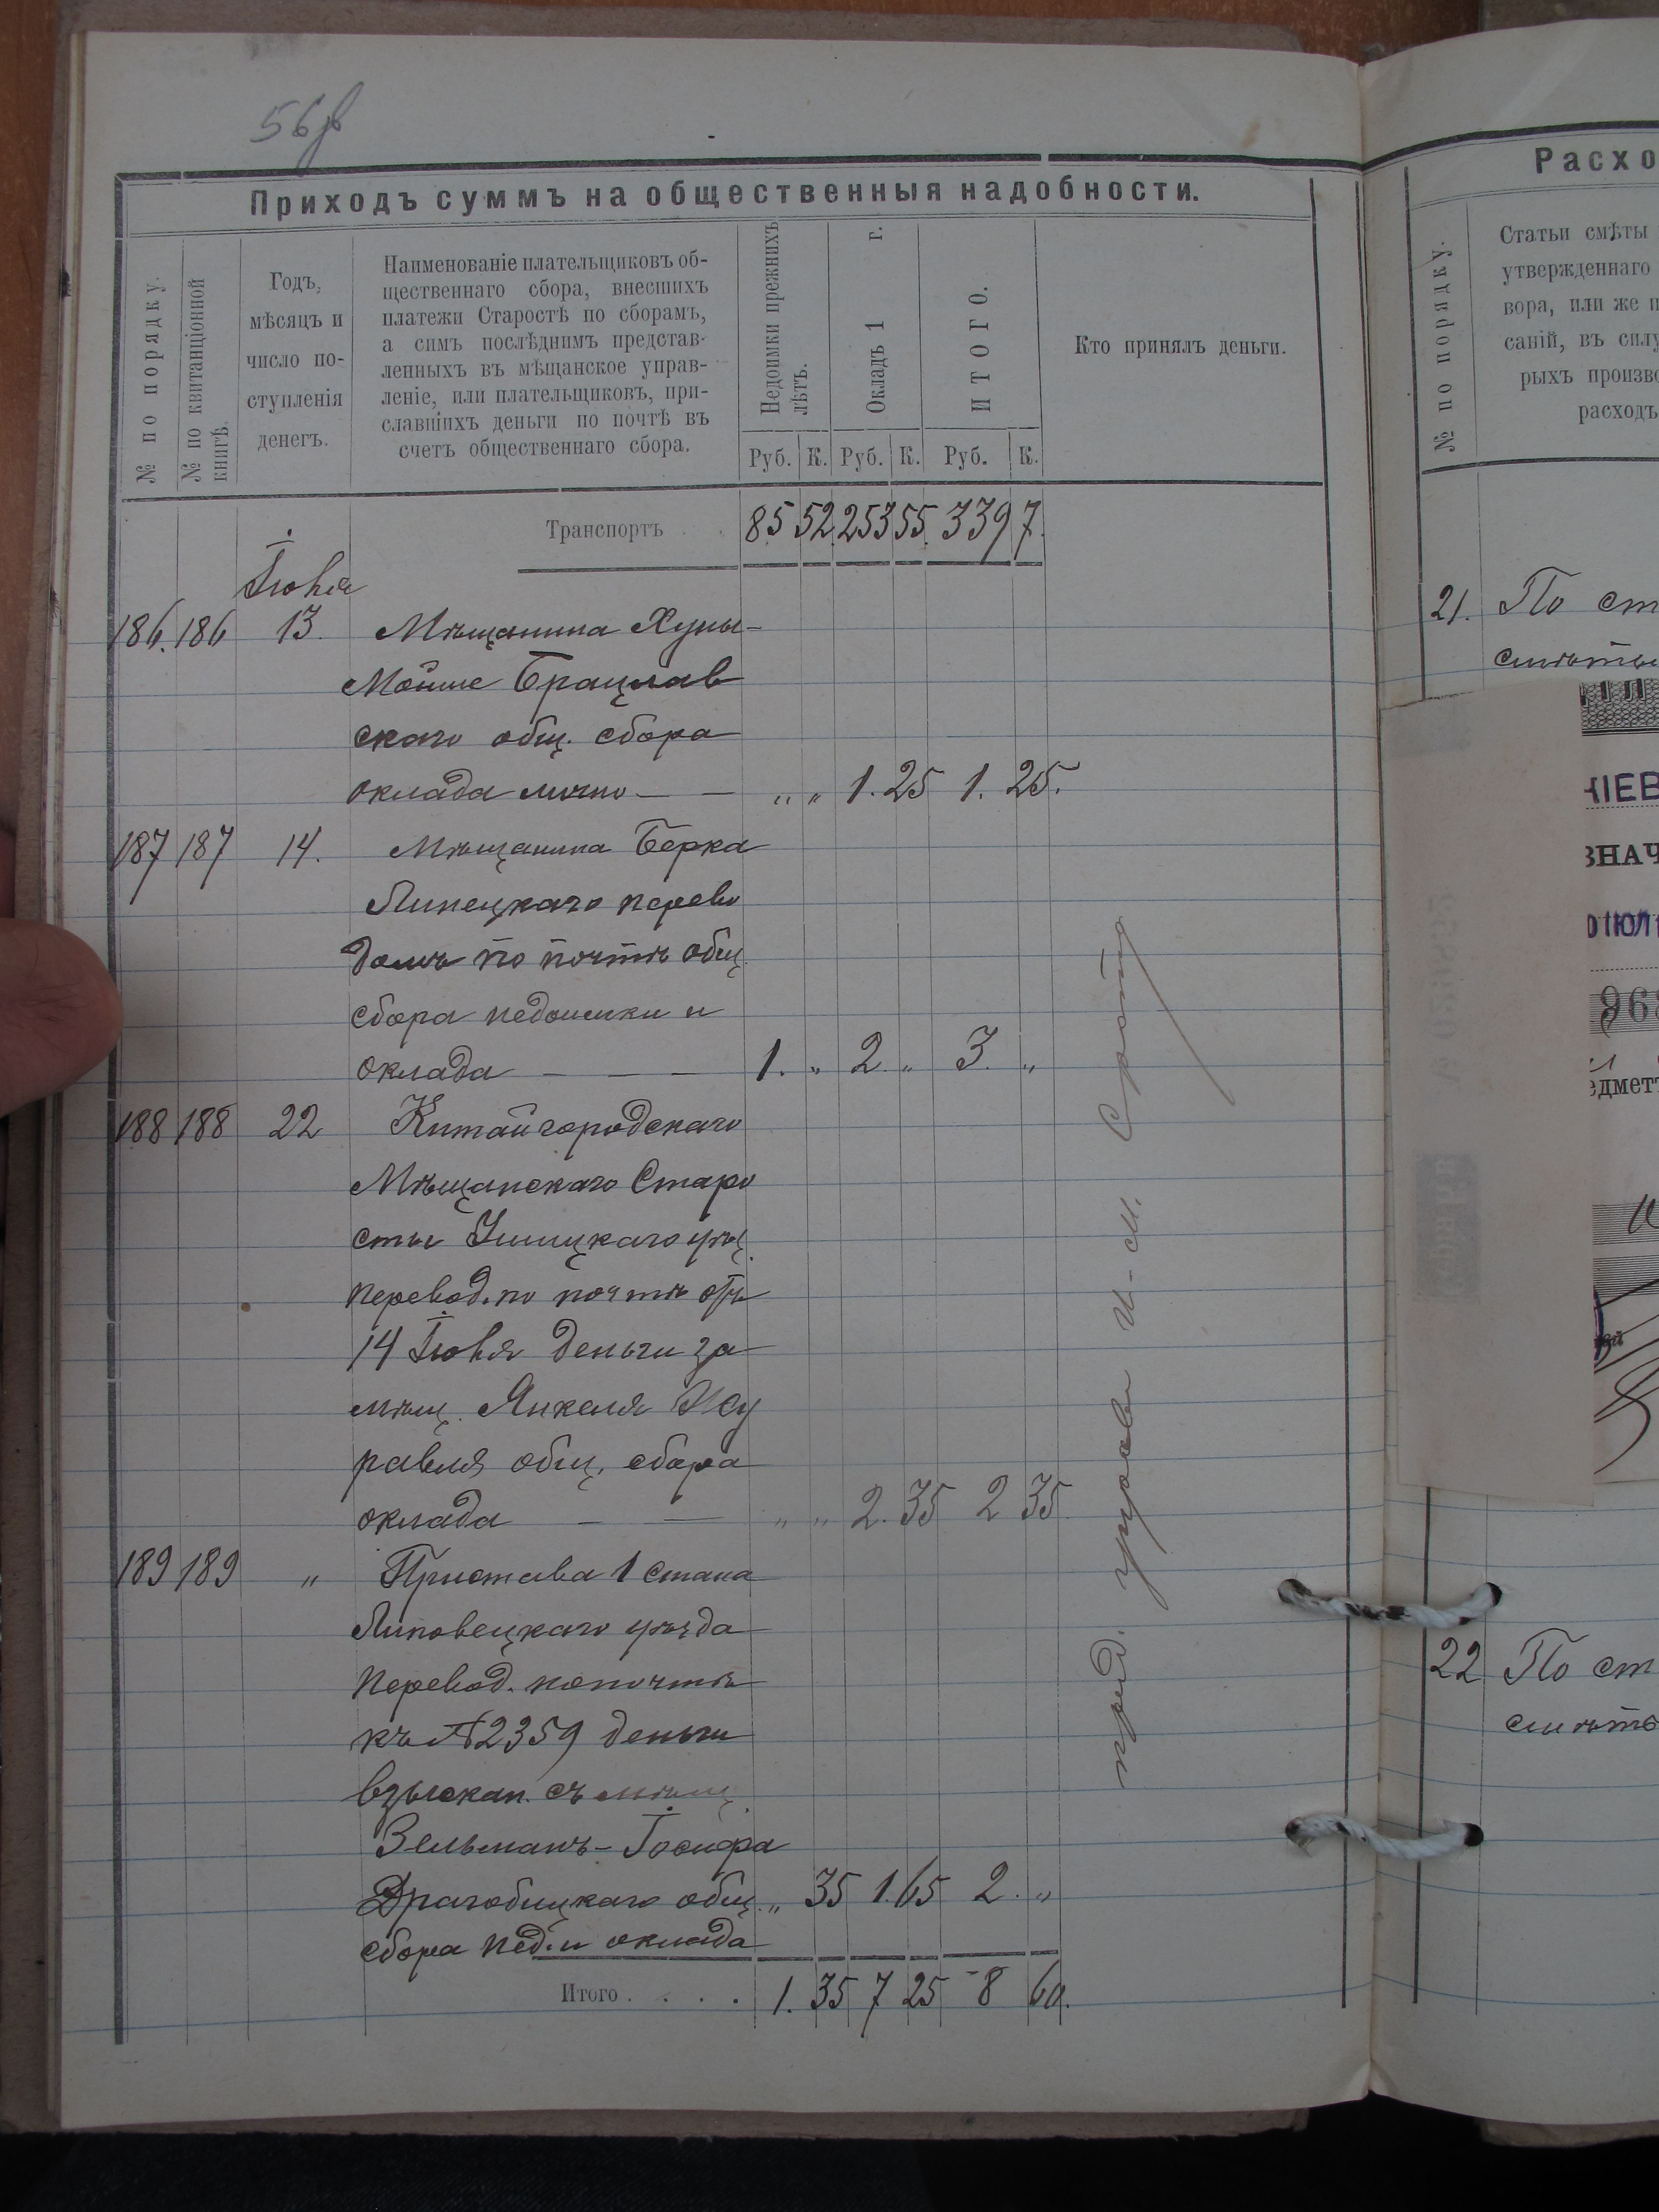 56об
Приходъ суммъ на общественныя надобности.
№ по порядку.
№ по квитанціонной
книгѣ.
Годъ,
мѣсяцъ и
число по-
ступленія
денегъ.
Наименованіе плательщиковъ об-
щественнаго сбора, внесшихъ
платежи Старостѣ по сборамъ,
а симъ послѣднимъ представ-
ленныхъ въ мѣщанское управ-
леніе, или плательщиковъ, при-
славшихъ деньги по почтѣ въ
счетъ общественнаго сбора.
Недоимки прежнихъ
лѣтъ.
Окладъ 1 г.
ИТОГО.
Руб. К. Руб. К. Руб. К.
Кто принялъ деньги.
Транспортъ . . 85 52 253 55 339 7
Іюня
186. 186 13. Мѣщанина Хуны-
Мойше Брацлав
скаго общ. сбора
оклада лично — — „ „ 1. 25 1. 25.
187 187 14. Мѣщанина Берка
Липецкаго перево
домъ по почтѣ общ.
сбора недоимки и
оклада — — — 1. „ 2. „ 3. „
188 188 22 Китайгородскаго
Мѣщанскаго Старо
сты Ушицкаго уѣз.
перевод. по почтѣ отъ
14 Іюня деньги за
мѣщ. Янкеля Жу
равля общ. сбора
оклада — — „ „ 2. 35 2 35.
189 189 „ Пристава 1 стана
Липовецкаго уѣзда
перевод. по почтѣ
къ № 2359 деньги
взыскан. съ мѣщ.
Зельманъ-Іосифа
Драгобицкаго общ. „ 35 1. 65 2. „
сбора нед. и оклада
Итого . . . . 1. 35 7 25 8 60.
Расхо
№ по порядку.
Статьи смѣты
утвержденнаго
вора, или же п
саній, въ силу
рыхъ произво
расходъ
21. По ст
смѣты
КІЕВ
ЗНАЧ
ІЮЛ
968
едметъ
22 По ст
смѣты